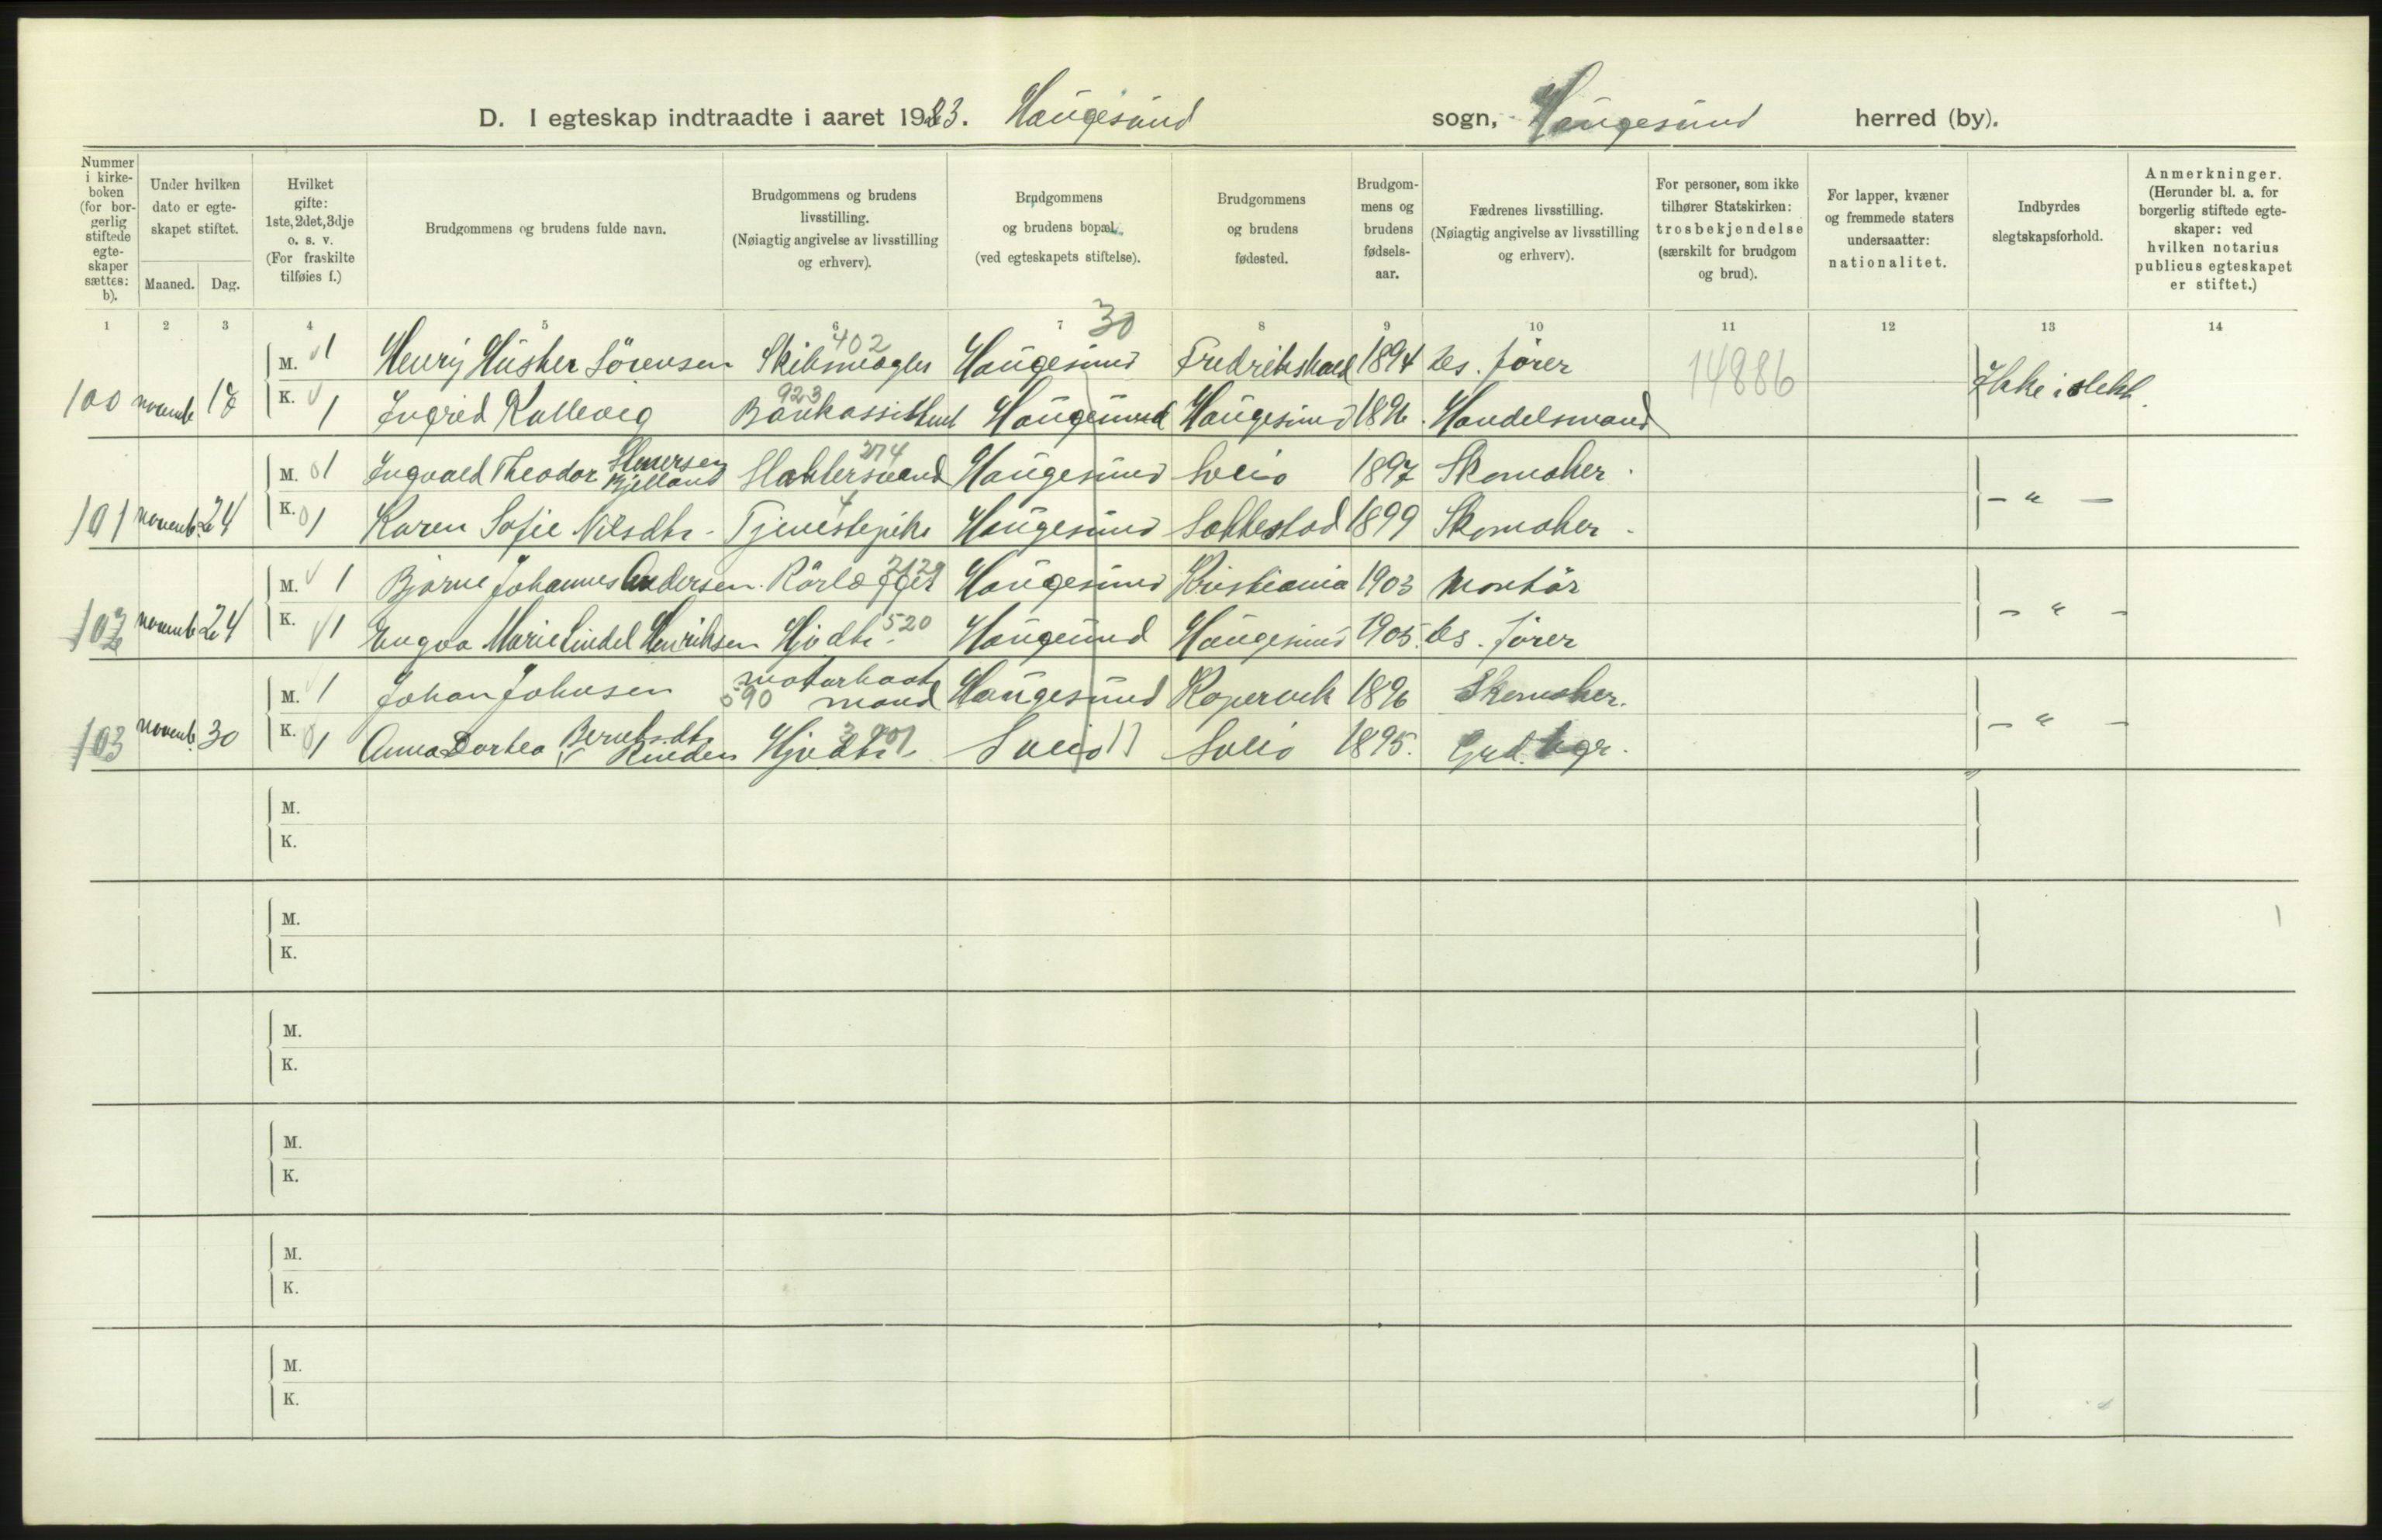 D. I egteskap indtraadte i aaret 1923. Haugesund sogn, Haugesund herred (by).
Nummer i kirke-boken (for bor-gerlig stiftede egte-skaper sættes: b).
Under hvilken dato er egte-skapet stiftet.
Maaned. Dag.
Hvilket gifte: 1ste, 2det, 3dje o. s. v. (For fraskilte tilføies f.)
Brudgommens og brudens fulde navn.
Brudgommens og brudens livsstilling. (Nøiagtig angivelse av livsstilling og erhverv).
Brudgommens og brudens bopæl (ved egteskapets stiftelse).
Brudgommens og brudens fødested.
Brudgom-mens og brudens fødsels-aar.
Fædrenes livsstilling. (Nøiagtig angivelse av livsstilling og erhverv).
For personer, som ikke tilhører Statskirken: trosbekjendelse (særskilt for brudgom og brud).
For lapper, kvæner og fremmede staters undersaatter: nationalitet.
Indbyrdes slegtskapsforhold.
Anmerkninger. (Herunder bl. a. for borgerlig stiftede egte-skaper: ved hvilken notarius publicus egteskapet er stiftet.)
1 2 3 4 5 6 7 8 9 10 11 12 13 14
30
402
M. 1 Henry Husher Sörensen Skibsmægler Haugesund Fredrikshald 1894 Des. förer 14886
100 novembr 18 Ikke i slekt.
923
K. 1 Ingrid Kallevig Bankassistent Haugesund Haugesund 1896. Handelsmand
274
M. 1 Ingvald Theodor Bjelland Slaktersvend Haugesund Sveio 1897 Skomaker
101 novembr. 24 – " –
4
K. 1 Karen Sofie Nilsdtr - Tjenestepike Haugesund Sokkestad 1899 Skomaker -
2129
M. 1 Bjarne Johannes Andersen. Rörlægger Haugesund Kristiania 1903 Montör
102 novembr 24 – " –
520
K. 1 Marie Lindel Henriksen Hjvdtr. Haugesund Haugesund 1905. Des. förer
M. 1 Johan Johnsen motorbaat mand 590 Haugesund Kopervik 1896 Skomaker.
103 novemb. 30 – " –
K. 1 Anna Dortea Berntsdtr Hjvdtr Sveio Sveio 1895. Grd.bgr.
M.
K.
M.
K.
M.
K.
M.
K.
M.
K.
M.
K.